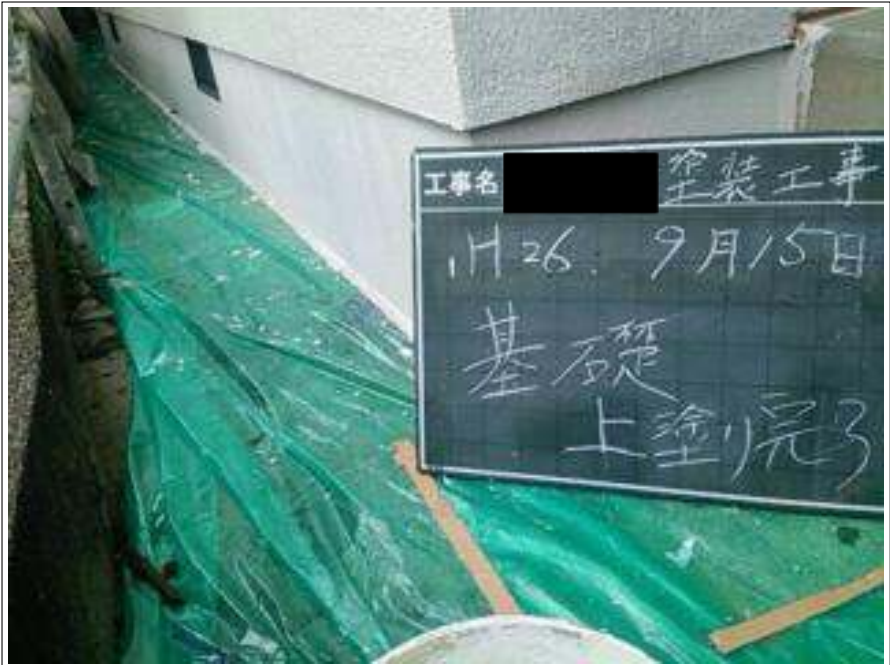 工事名 塗装工事
H26. 9月15日
基礎
上塗り完了